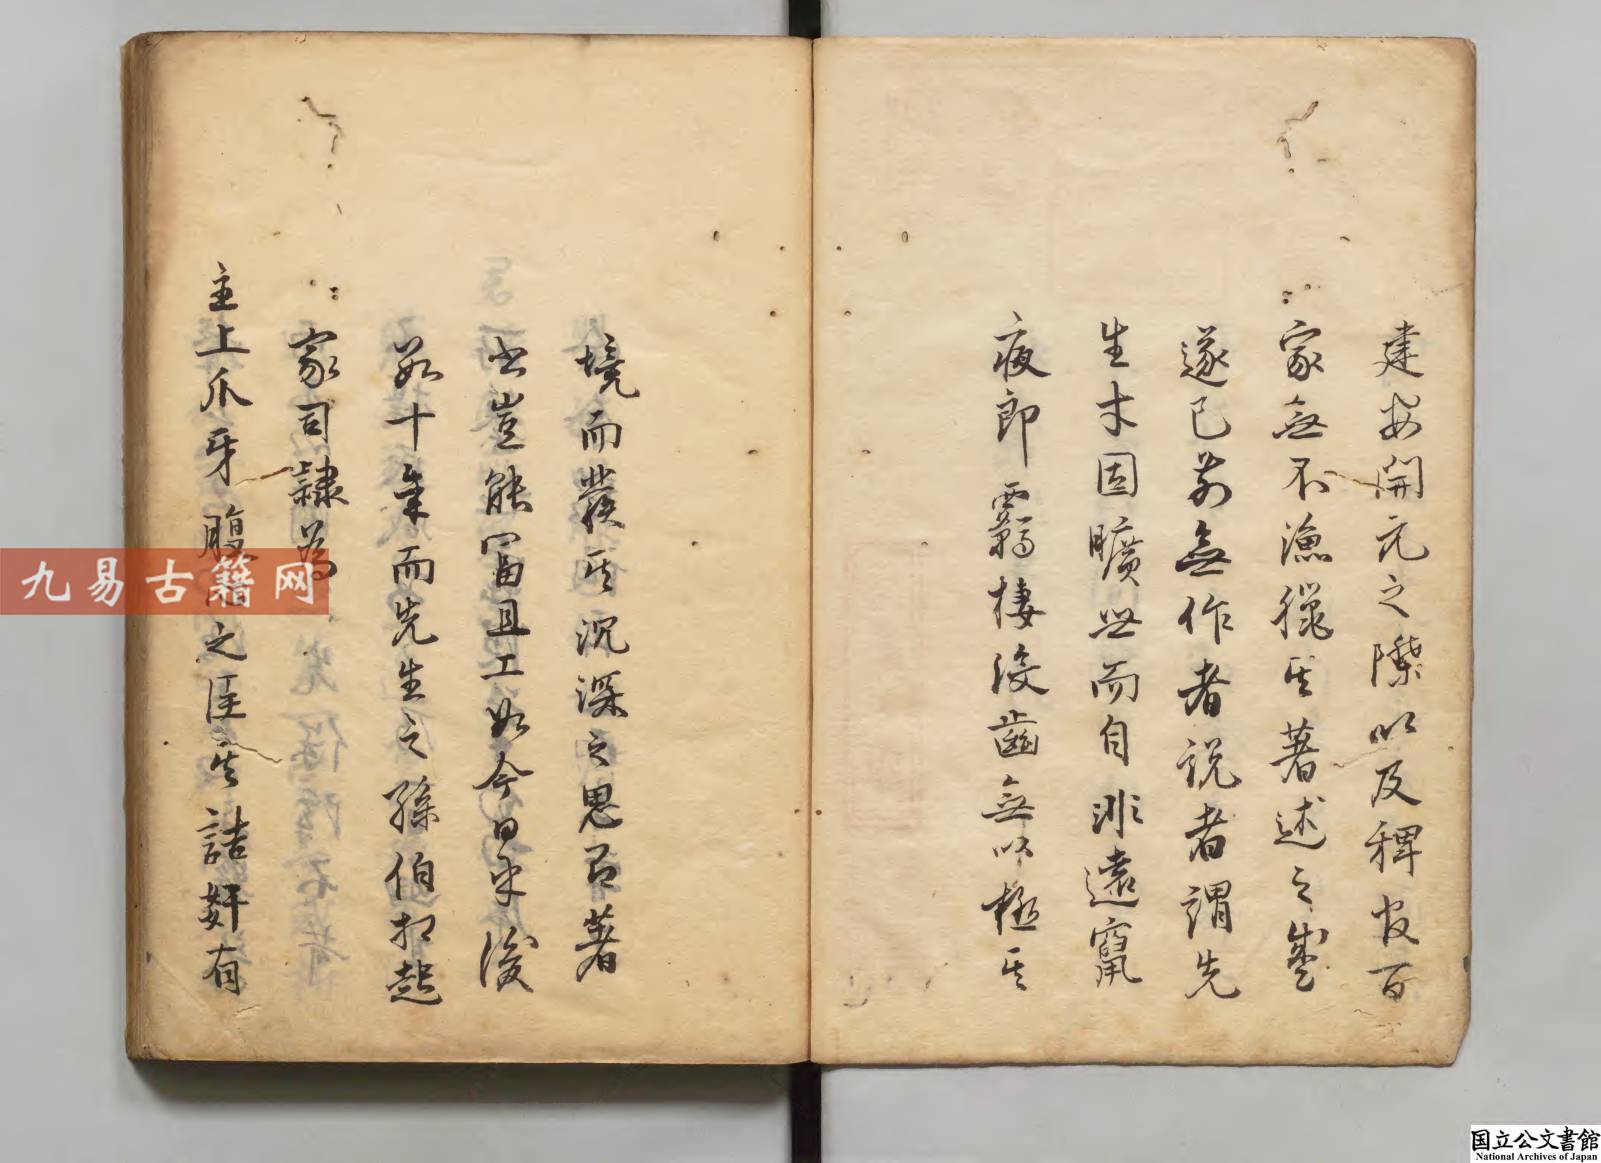 建安開元之際以及稗官百
家無不漁獵其著述之盛
遂已前無作者説者謂先
生才固曠世而自非遠竄
夜郎羈棲没齒無以極其
境而發其沉深之思即著
書豈能富且工如今日乎後
數十年而先生之孫伯扣起
家司隸為
主上爪牙腹心之臣其詰奸有
九易古籍网
国立公文書館
National Archives of Japan